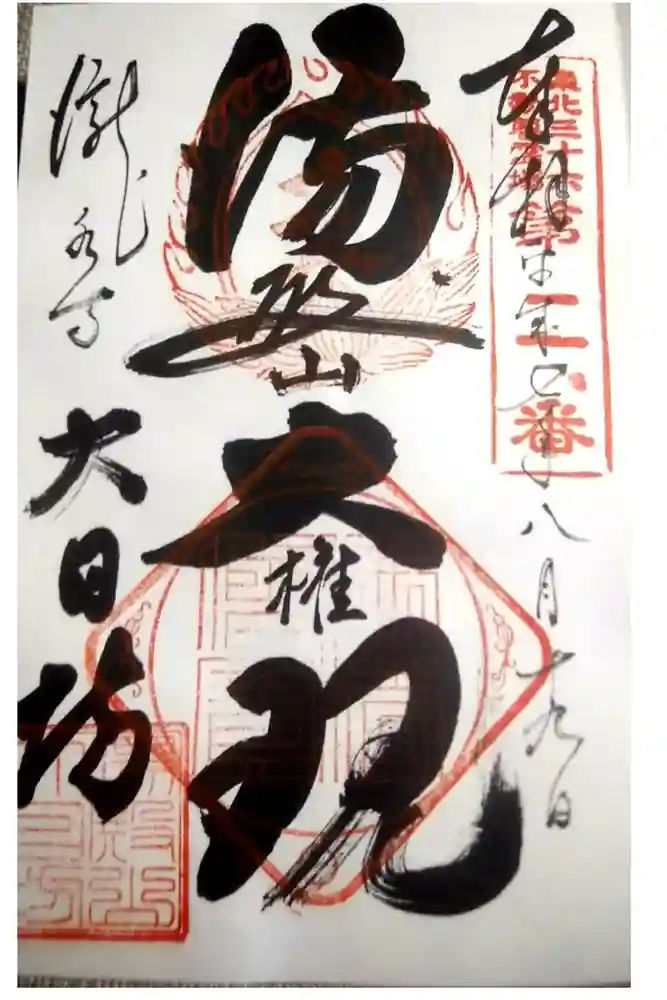 東北三十六
不動尊霊場
第
番
奉拝 平成
年八月十九日
湯殿山大権現
瀧水寺
大日坊